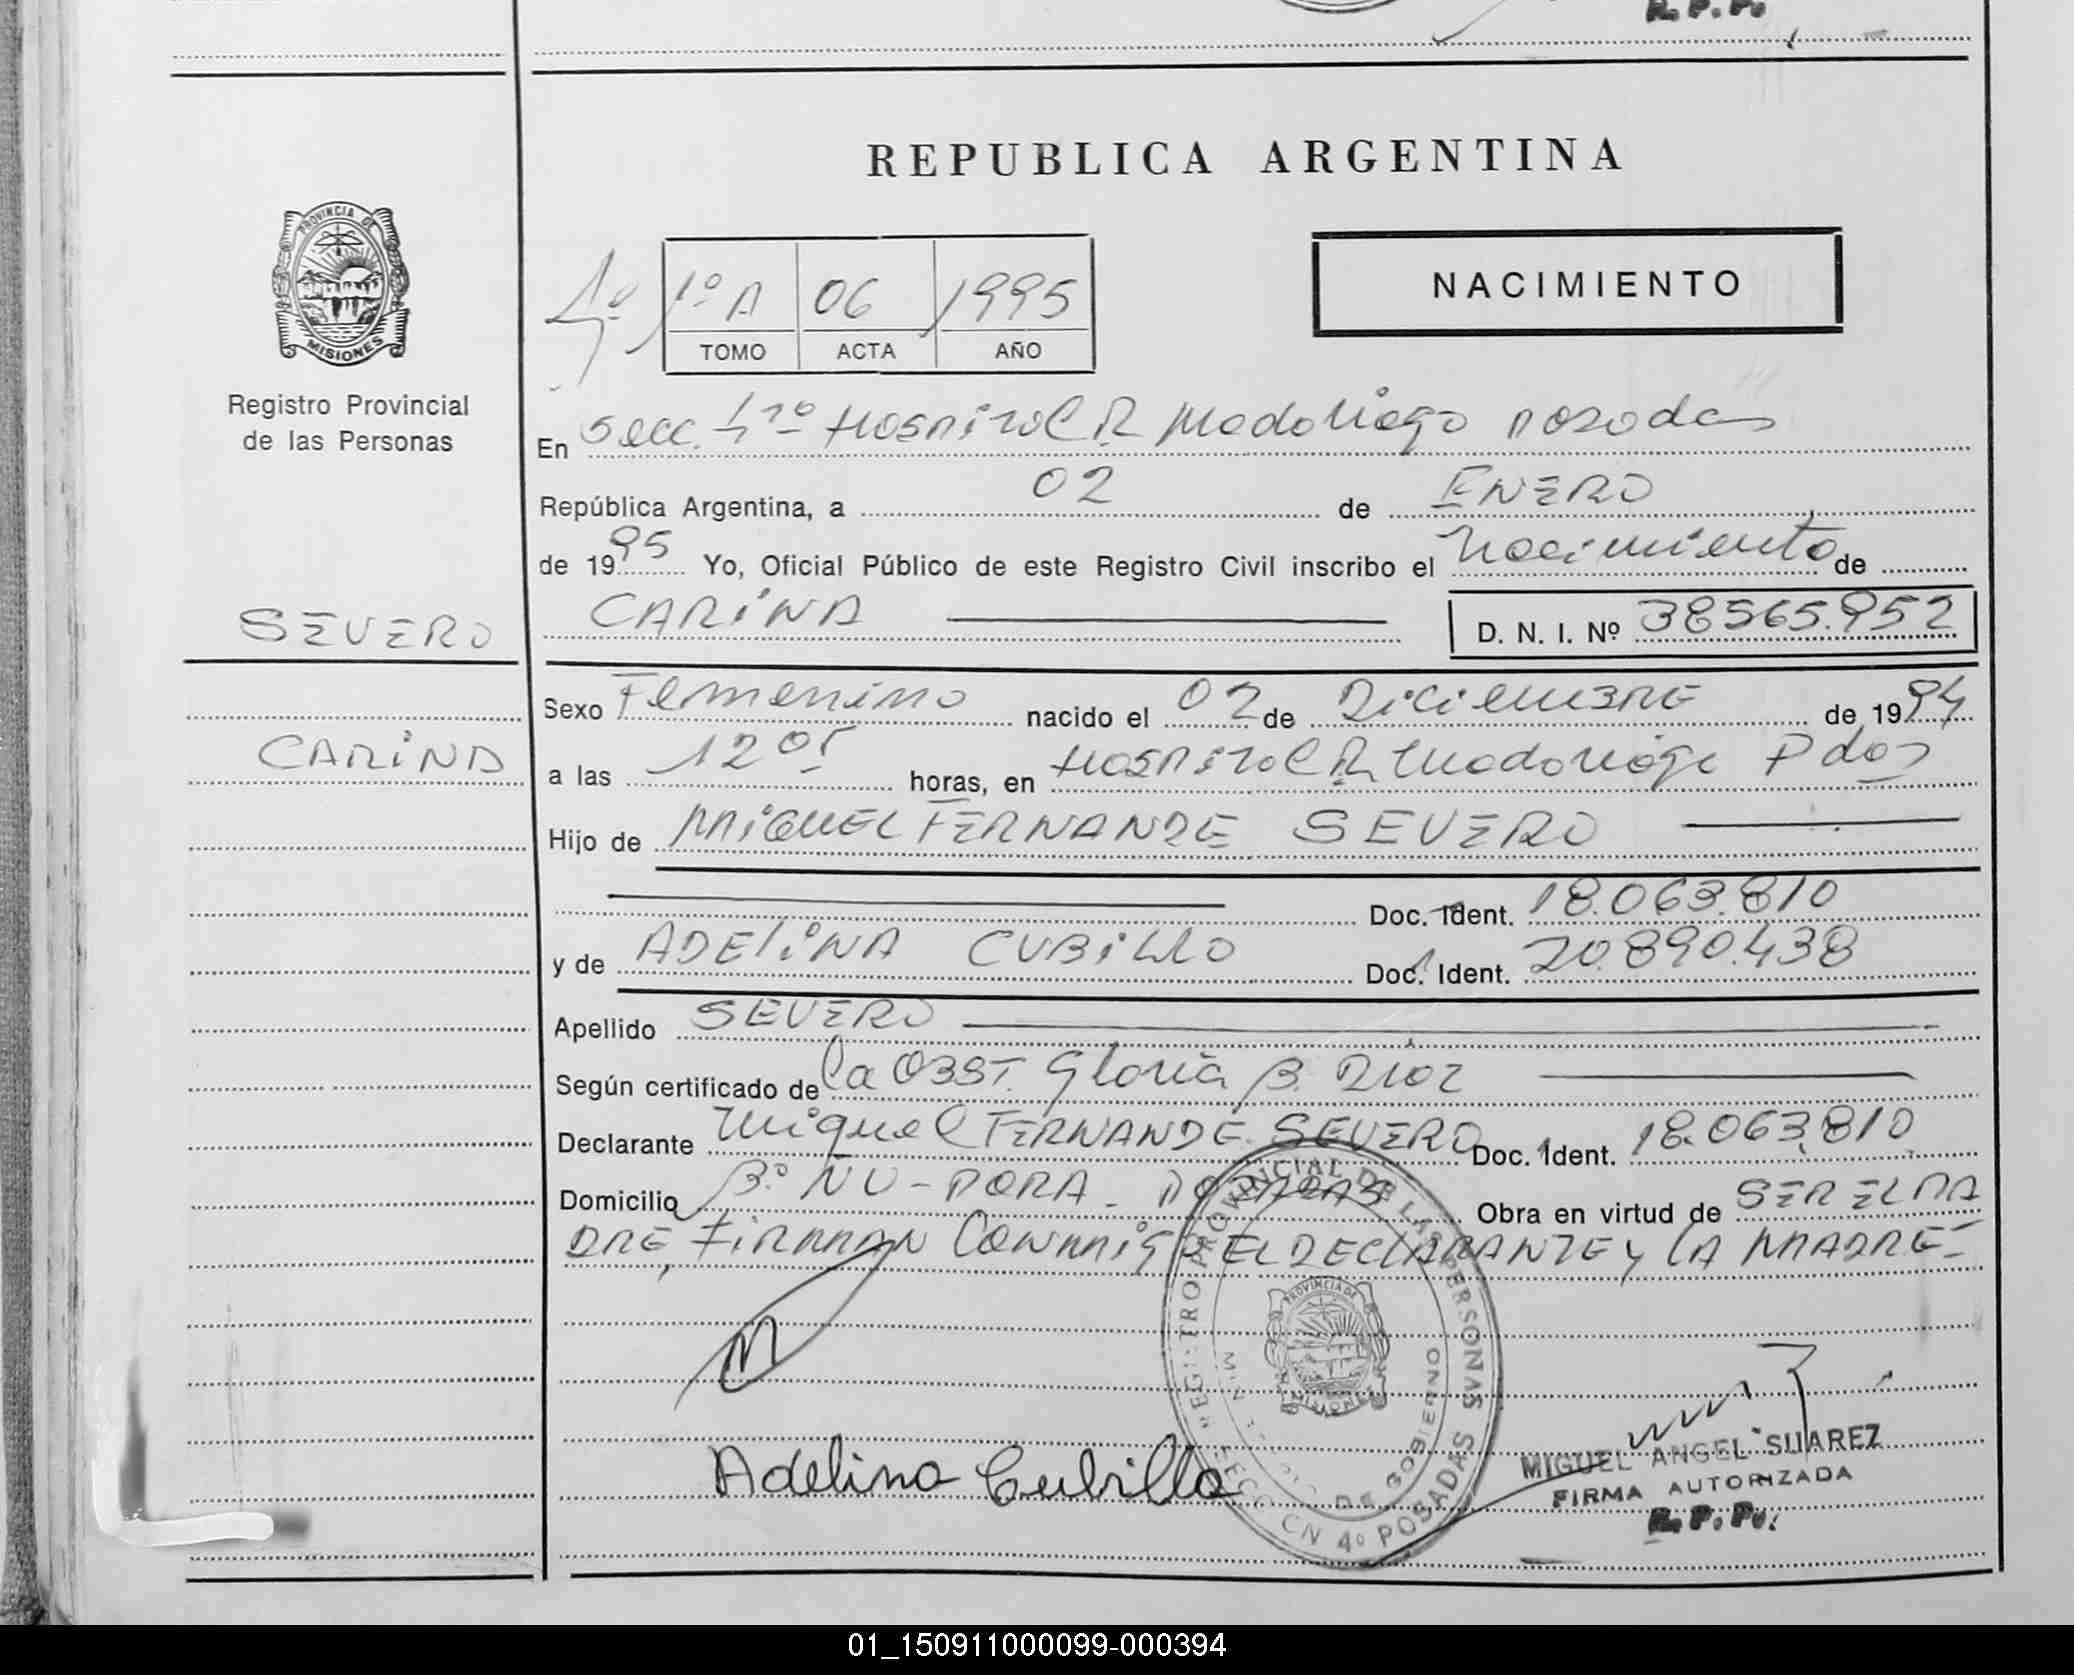 R. P. P.
REPUBLICA ARGENTINA
PROVINCIA DE
MISIONES
4º 1º A 06 1995
TOMO ACTA AÑO
NACIMIENTO
Registro Provincial
de las Personas
En Secc. 4º Hospital R Madariaga Posadas
República Argentina, a 02 de ENERO
de 1995 Yo, Oficial Público de este Registro Civil inscribo el Nacimiento de
SEVERO CARINA D. N. I. Nº 38565.952
Sexo Femenino nacido el 02 de Diciembre de 1994
CARINA a las 12 05 horas, en Hospital R. Madariaga Pdas
Hijo de MIGUEL FERNANDE SEVERO
Doc. Ident. 18.063.810
y de ADELINA CUBILLO Doc. Ident. 20.890.438
Apellido SEVERO
Según certificado de la OBST. Gloria B. Diaz
Declarante Miguel FERNANDE SEVERO Doc. Ident. 18.063.810
Domicilio Bº ÑU-PORA - POSADAS Obra en virtud de SER EL PA
DRE, FIRMAN CONMIGO EL DECLARANTE Y LA MADRE-
REGISTRO PROVINCIAL DE LAS PERSONAS
PROVINCIA DE
MISIONES
DE GOBIERNO
SECCION 4º POSADAS
Adelina Cubilla
MIGUEL ANGEL SUAREZ
FIRMA AUTORIZADA
R. P. P.
01_150911000099-000394